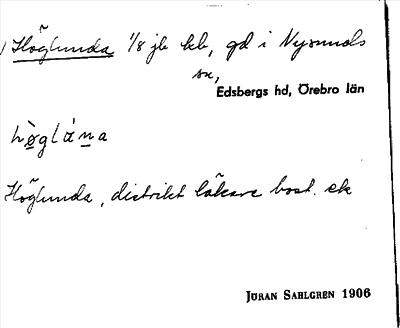 Höglunda 1/8 jb kb, gd i Nysunds
sn,
Edsbergs hd, Örebro län
hø̀glána
Höglunda, distrikt läkare bost.
JÖRAN SAHLGREN 1906